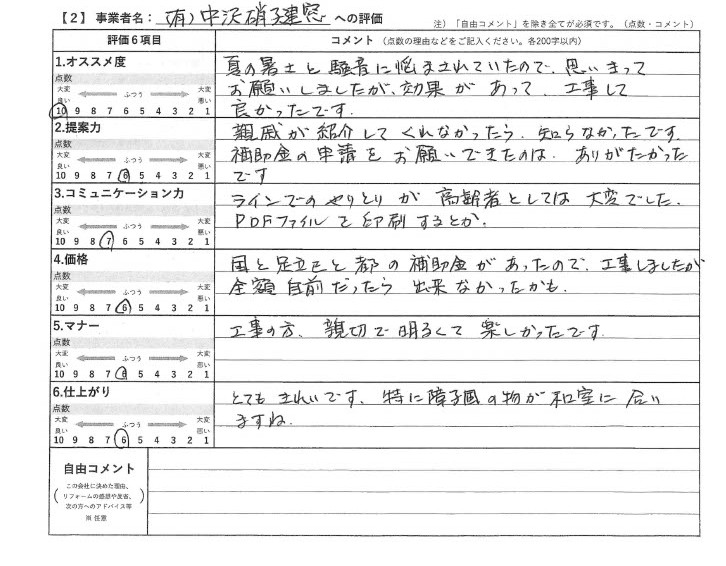 【2】事業者名： (有)中沢硝子建窓 への評価
注）「自由コメント」を除き全てが必須です。（点数・コメント）
評価６項目
コメント（点数の理由などをご記入ください。各200字以内）
1.オススメ度
点数
大変良い ふつう 大変悪い
10 9 8 7 6 5 4 3 2 1
夏の暑さと騒音に悩まされていたので、思いきって
お願いしましたが、効果があって、工事して
良かったです.
2.提案力
点数
大変良い ふつう 大変悪い
10 9 8 7 6 5 4 3 2 1
親戚が紹介してくれなかったら、知らなかったです.
補助金の申請をお願いできたのは、ありがたかった
です
3.コミュニケーション力
点数
大変良い ふつう 大変悪い
10 9 8 7 6 5 4 3 2 1
ラインでのやりとりが 高齢者としては 大変でした.
PDFファイルを印刷するとか.
4.価格
点数
大変良い ふつう 大変悪い
10 9 8 7 6 5 4 3 2 1
国と足立区と都の補助金があったので、工事しましたが
全額自前だったら 出来なかったかも.
5.マナー
点数
大変良い ふつう 大変悪い
10 9 8 7 6 5 4 3 2 1
工事の方、親切で明るくて楽しかったです.
6.仕上がり
点数
大変良い ふつう 大変悪い
10 9 8 7 6 5 4 3 2 1
とてもきれいです、特に障子風の物が和室に合い
ますね.
自由コメント
（この会社に決めた理由、
リフォームの感想や反省、
次の方へのアドバイス等）
※ 任意